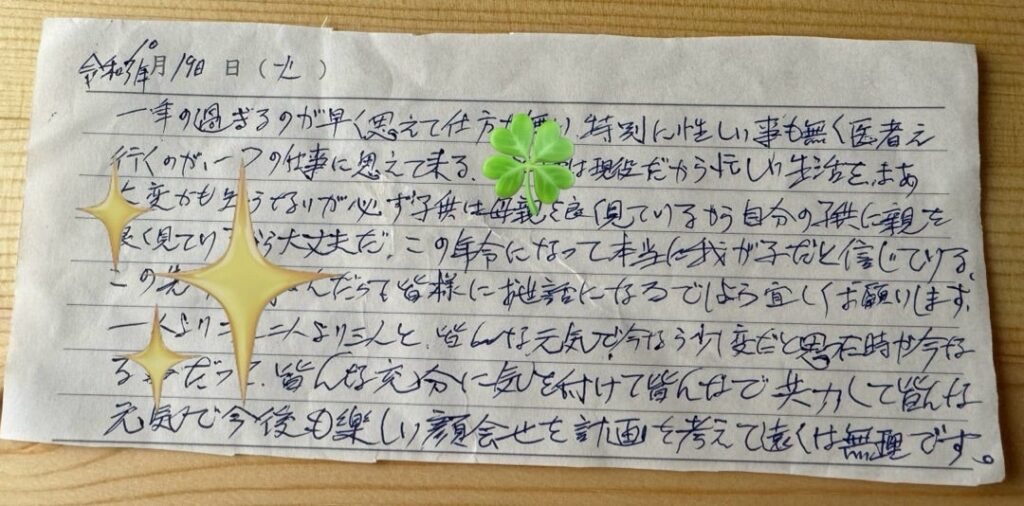 令和3年10月19日 日(火)
一年の過ぎるのが早く思えて仕方が無い、特別に忙しい事も無く医者え
行くのが、一つの仕事に思えて来る、は現役だから忙しい生活を、まあ
大変かも知らないが必ず子供は母親を良く見ているから自分の子供に親を
良く見ているから大丈夫だ、この年令になって本当に我が子だと信じている、
この先んだらも皆様にお世話になるでしょう宜しくお願いします、
一人より二人より三人と、皆んな元気で今なら少変だと思た時や今な
るだって、皆んな充分に気を付けて皆んなで共力して皆んな
元気で今後も楽しい顔会せを計画を考えて遠くは無理です。